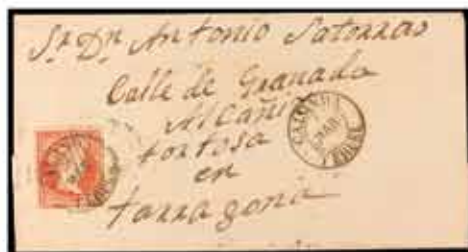 Sr. Dn Antonio Satorras
Calle de Granada
Alcañiz
tortosa
en
tarragona
CALANDA
TERUEL